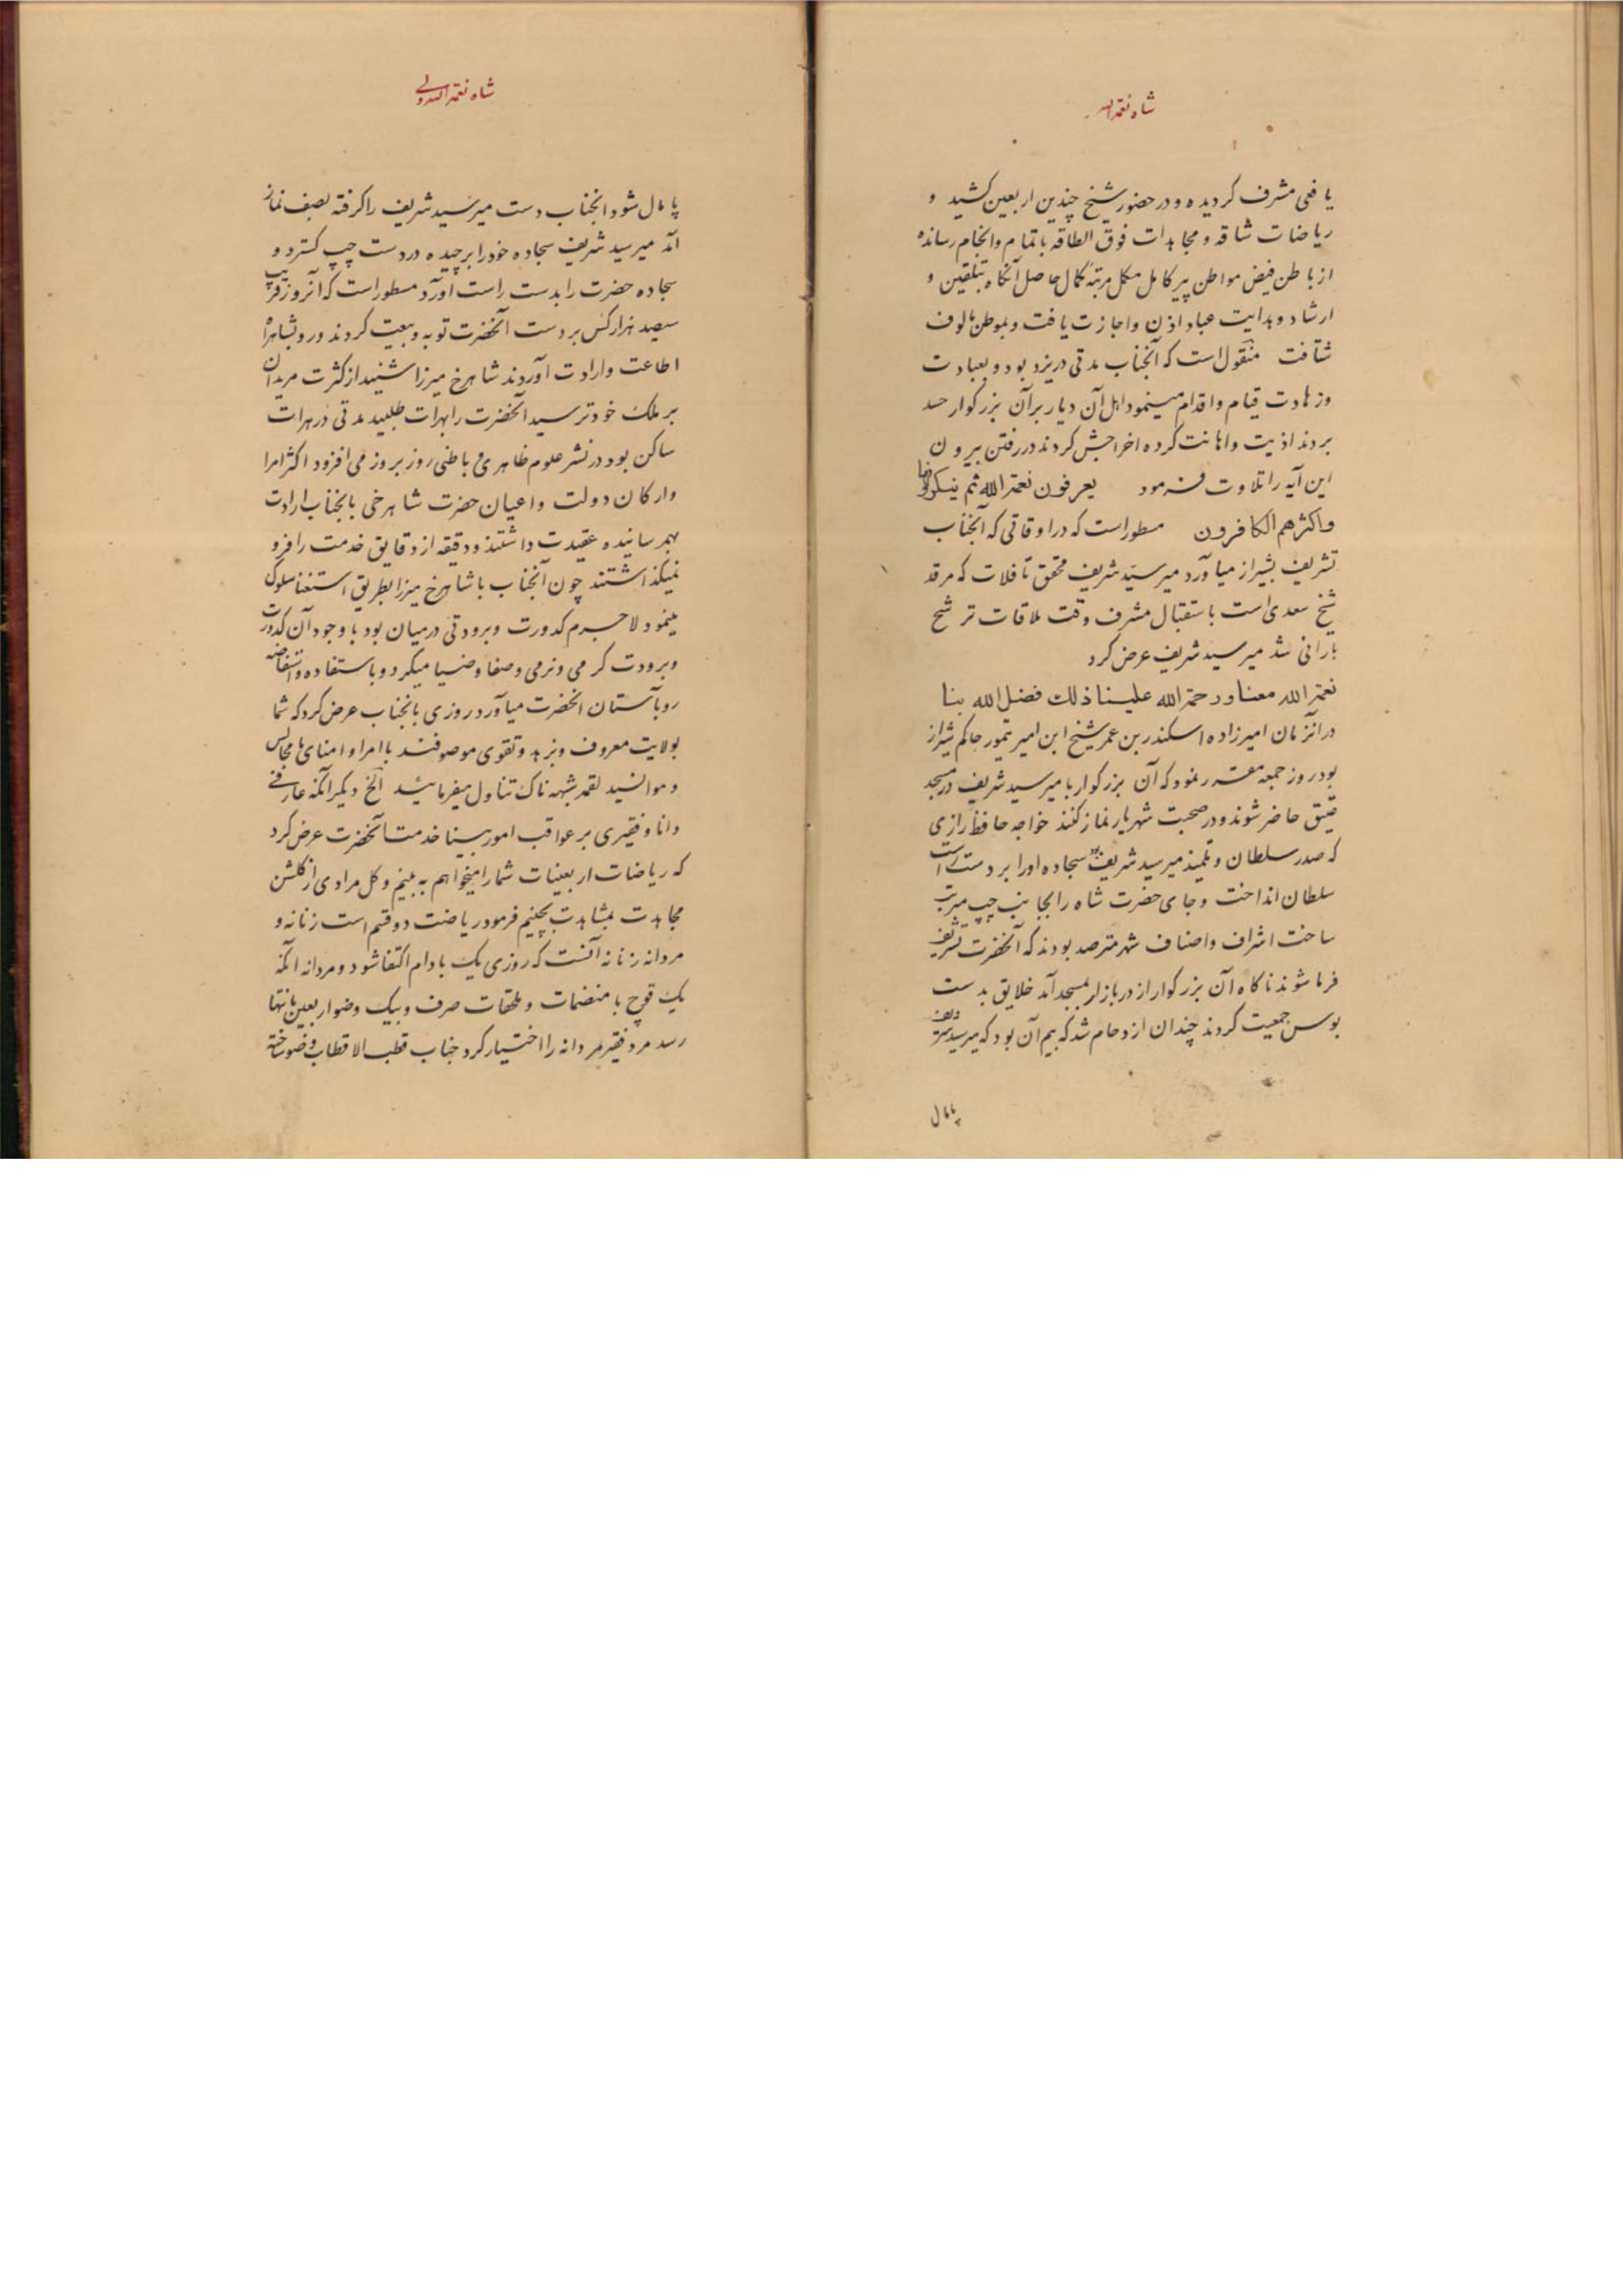 شاه نعمة الله
یافعی مشرف گردیده و در حضور شیخ چندین اربعین کشید و
ریاضات شاقه و مجاهدات فوق الطاقه باتمام و انجام رسانده
از باطن فیض مواطن پیر کامل مکمل مرتبهٔ کمال حاصل آنگاه بتلقین و
ارشاد و هدایت عباد اذن و اجازت یافت و بموطن مالوف
شتافت منقول است که آنجناب مدتی در یزد بود و بعبادت
و زهادت قیام و اقدام مینمود اهل آن دیار بر آن بزرگوار حسد
بردند اذیت و اهانت کرده اخراجش کردند در رفتن بیرون
این آیه را تلاوت فرمود یعرفون نعمة الله ثم ینکرونها
و اکثرهم الکافرون مسطور است که در اوقاتی که آنجناب
تشریف بشیراز میاورد میر سید شریف محقق تا فلات که مرقد
شیخ سعدی است باستقبال مشرف وقت ملاقات ترشح
بارانی شد میر سید شریف عرض کرد
نعمة الله معنا و رحمة الله علینا ذلك فضل الله بنا
در آنزمان امیرزاده اسکندر بن عمر شیخ ابن امیر تیمور حاکم شیراز
بود روز جمعه مقرر نمود که آن بزرگوار با میر سید شریف در مسجد
عتیق حاضر شوند و در صحبت شهریار نماز کنند خواجه حافظ رازی
که صدر سلطان و تلمیذ میر سید شریف بود سجاده او را بر دست راست
سلطان انداخت و جای حضرت شاه را بجانب چپ مرتب
ساخت اشراف و اصناف شهر مترصد بودند که آنحضرت تشریف
فرما شوند ناگاه آن بزرگوار از در بازار بمسجد آمد خلایق بدست
بوس جمعیت کردند چندان ازدحام شد که بیم آن بود که میر سید شریف
پامال
شاه نعمة الله ولی
پامال شود انجناب دست میر سید شریف را گرفته بصف نماز
آمد میر سید شریف سجاده خود را برچیده در دست چپ گسترد و
سجاده حضرت را بدست راست آورد مسطور است که آنروز قریب
سیصد هزار کس بر دست آنحضرت توبه و بیعت کردند و رو بشاهراه
اطاعت و ارادت آوردند شاهرخ میرزا شنید از کثرت مریدان
بر ملک خود ترسید آنحضرت را بهرات طلبید مدتی در هرات
ساکن بود در نشر علوم ظاهری و باطنی روز بروز می افزود اکثر امرا
و ارکان دولت و اعیان حضرت شاهرخی بانجناب ارادت
بهم رسانیده عقیدت داشتند و دقیقه از دقایق خدمت را فرو
نمیگذاشتند چون آنجناب با شاهرخ میرزا بطریق استغنا سلوک
مینمود لاجرم کدورت و برودتی در میان بود با وجود آن کدورت
و برودت گرمی و نرمی و صفا و ضیا میکرد و باستفاده و استفاضه
رو بآستان آنحضرت میاورد روزی بانجناب عرض کرد که شما
بولایت معروف و بزهد و تقوی موصوفند با امرا و امنای ما مجالس
و موانسید لقمه شبهه ناک تناول میفرمائید الخ دیگر آنکه عارفی
دانا و فقیری بر عواقب امور بینا خدمت آنحضرت عرض کرد
که ریاضات اربعینات شما را میخواهم به بینم و گل مرادی از گلشن
مجاهدت بمشاهدت بچینم فرمود ریاضت دو قسم است زنانه و
مردانه زنانه آنست که روزی یک بادام اکتفا شود و مردانه آنکه
یک قوچ با منضمات و ملحقات صرف و بیک وضو اربعین بانتها
رسد مرد فقیر مردانه را اختیار کرد جناب قطب الاقطاب وضو ساخته